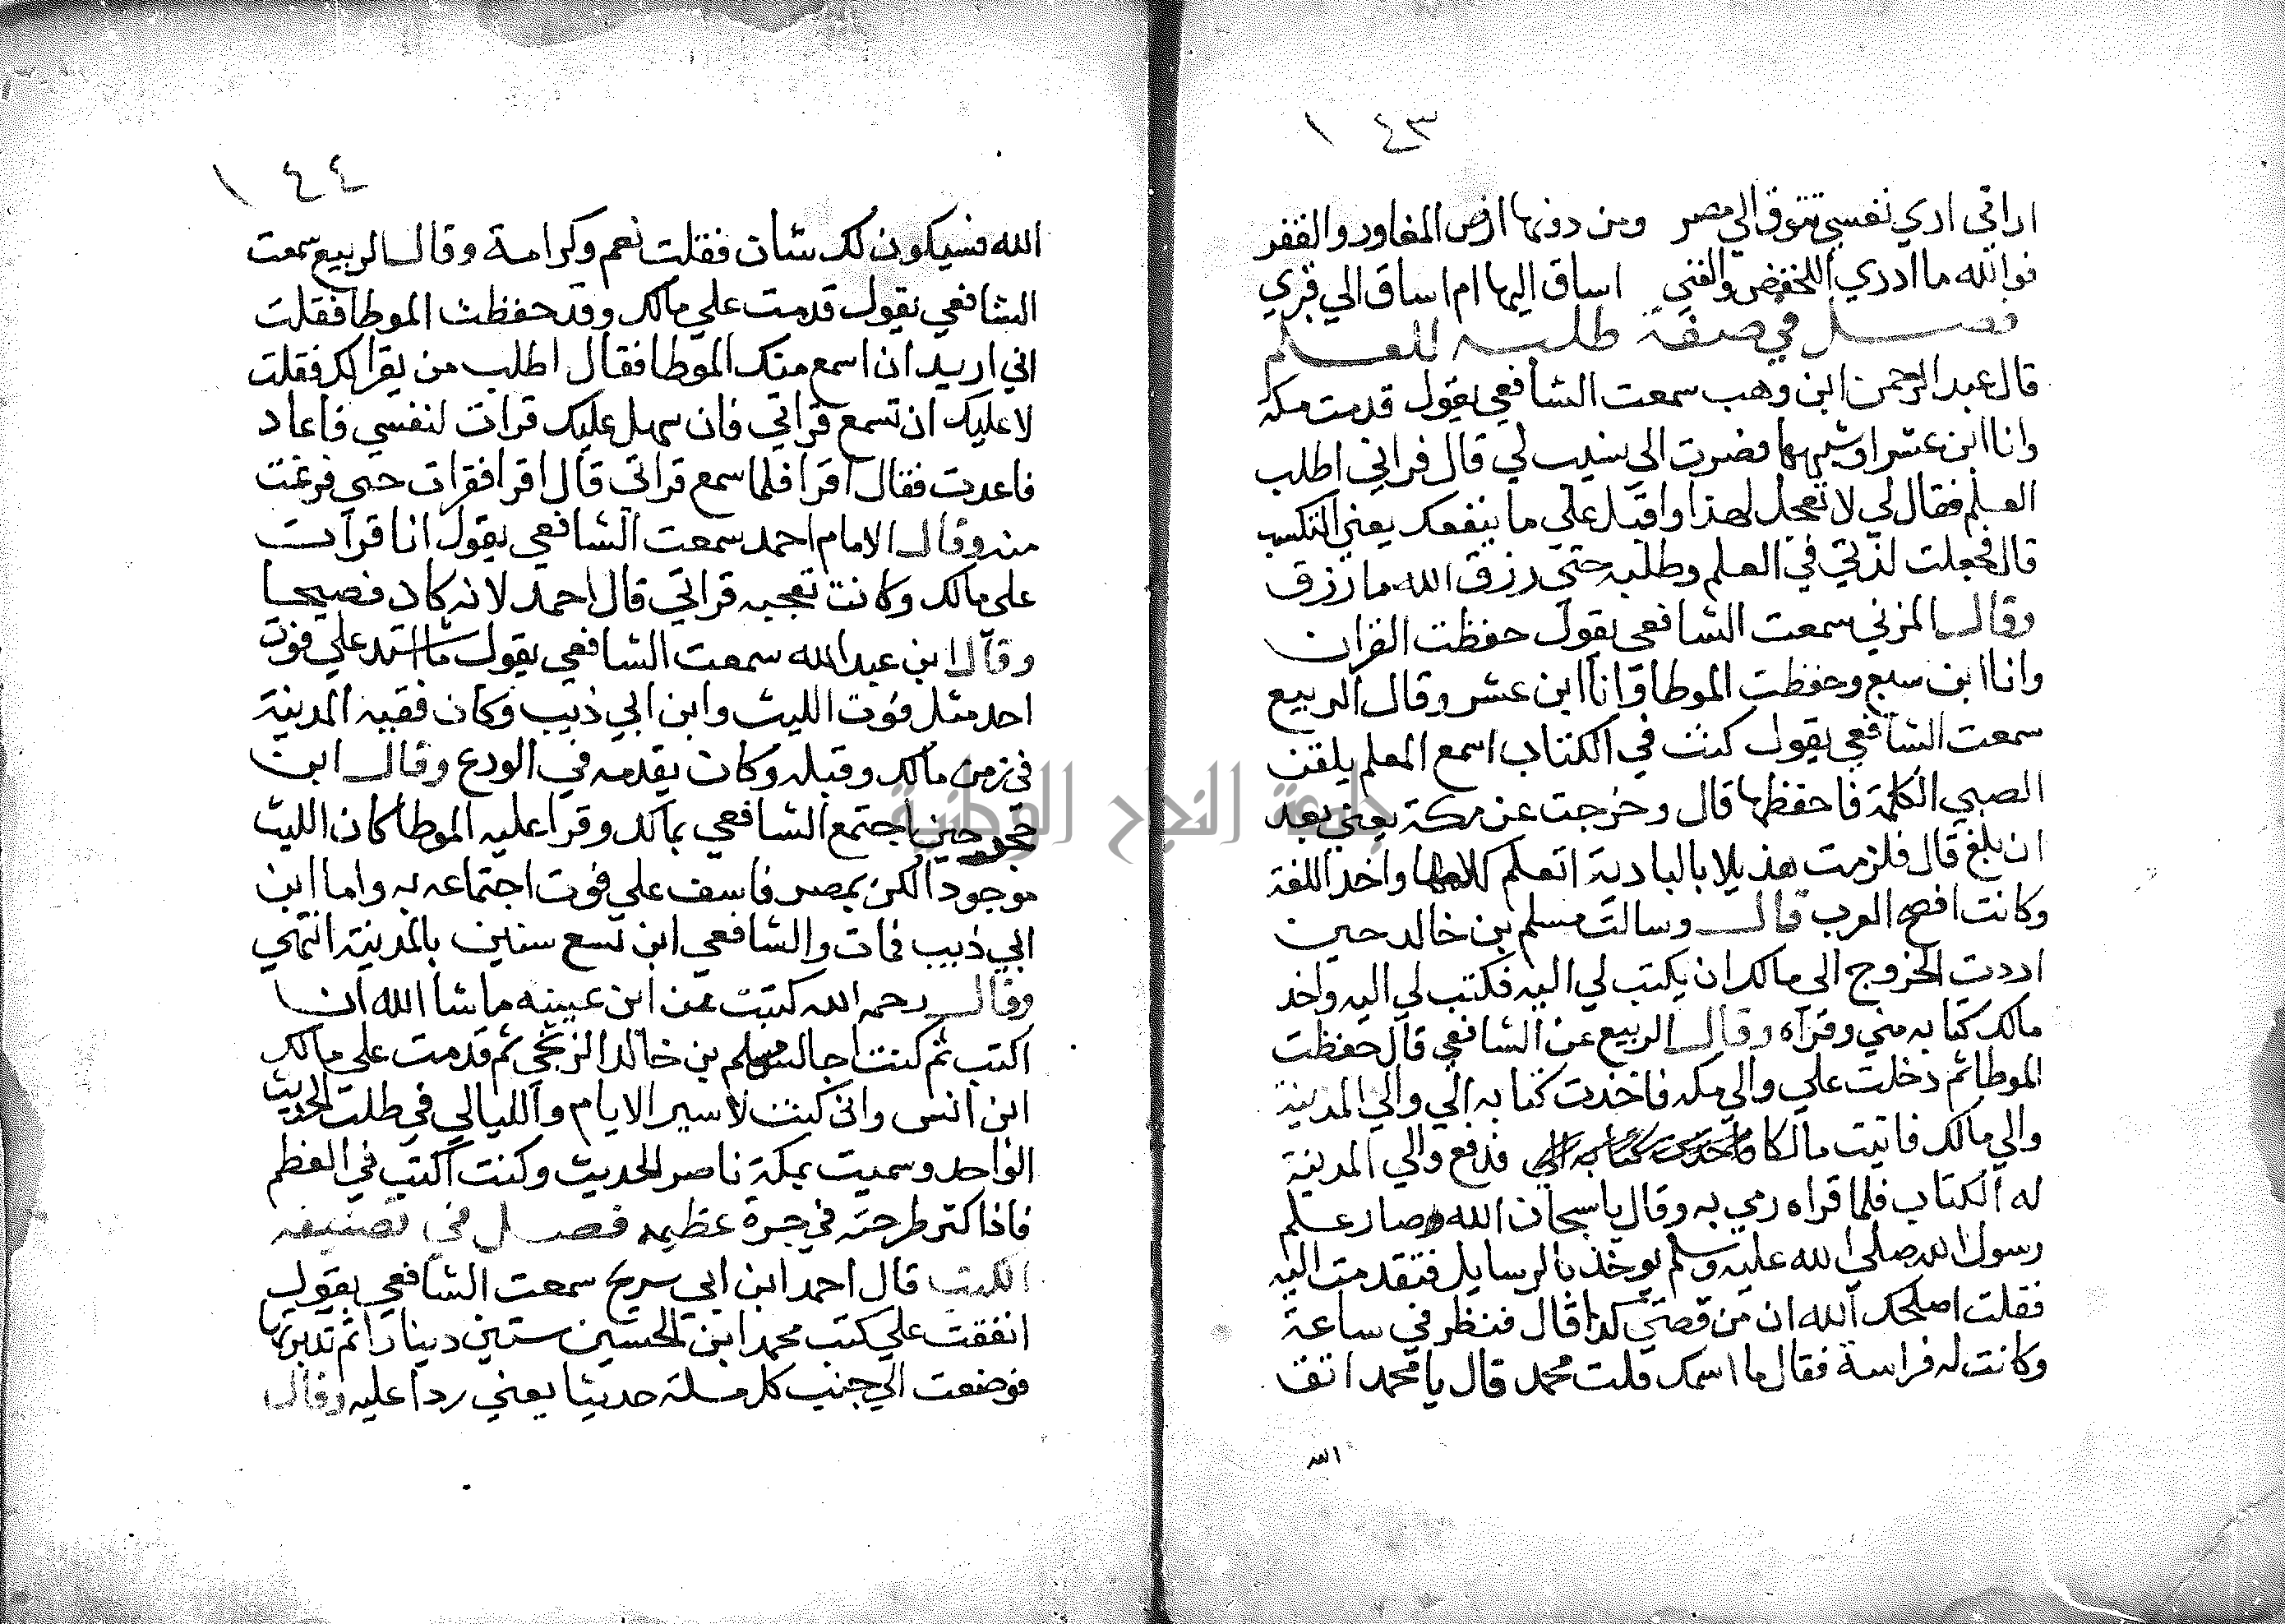 ١٤٣
اراني اري نفسي تتوق الي مصر ومن دونها ارض المفاوز والقفر
فوالله ما ادري اللخفض والغني اساق اليها ام اساق الي قبري
فصل في صفة طلبه للعلم
قال عبد الرحمن ابن وهب سمعت الشافعي يقول قدمت مكه
وانا ابن عشر او شبهها فصرت الي نسيب لي قال فراني اطلب
العلم فقال لي لا تعجل لهذا واقبل علي ما ينفعك يعني التكسب
قال فجعلت لذتي في العلم وطلبه حتي رزق الله ما رزق
وقال المزني سمعت الشافعي يقول حفظت القران
وانا ابن سبع وحفظت الموطا وانا ابن عشر وقال الربيع
سمعت الشافعي يقول كنت في الكتاب اسمع المعلم يلقن
الصبي الكلمة فاحفظها قال وخرجت عن مكة يعني بعد
ان بلغ قال فلزمت هذيلا بالبادية اتعلم كلامها واخد اللغة
وكانت افصح العرب قال وسالت مسلم بن خالد حين
اردت الخروج الي مالك ان يكتب لي اليه فكتب لي اليه واخد
مالك كتابه مني وقراه وقال الربيع عن الشافعي قال حفظت
الموطا ثم دخلت علي والي مكه فاخدت كتابه الي والي المدينة
والي مالك فاتيت مالكا فاخدت كتابه الي فدفع والي المدينة
له الكتاب فلما قراه رمي به وقال يا سبحان الله وصار علم
رسول الله صلي الله عليه وسلم يوخذ بالرسايل فتقدمت اليه
فقلت اصلحك الله ان من قصتي كدا قال فنظر في ساعة
وكانت له فراسة فقال ما اسمك قلت محمد قال يا محمد اتق
الله
١٤٤
الله فسيكون لك شان فقلت نعم وكرامة وقال الربيع سمعت
الشافعي يقول قدمت علي مالك وقد حفظت الموطا فقلت
اني اريد ان اسمع منك الموطا فقال اطلب من يقرا لك فقلت
لا عليك ان تسمع قراتي فان سهل عليك قرات لنفسي فاعاد
فاعدت فقال اقرا فلما سمع قراتي قال اقرا فقرات حتي فرغت
منه وقال الامام احمد سمعت الشافعي يقول انا قرات
علي مالك وكانت تعجبه قراتي قال احمد لانه كان فصيحا
وقال ابن عبد الله سمعت الشافعي يقول ما اشتد علي فوت
احد مثل فوت الليث وابن ابي ذيب وكان فقيه المدينة
في زمن مالك وقبله وكان يقدمه في الورع وقال ابن
حجر حين اجتمع الشافعي بمالك وقرا عليه الموطا كان الليث
موجودا لكن بمصر فاسف علي فوت اجتماعه به واما ابن
ابي ذيب فات والشافعي ابن تسع سنين بالمدينة انتهي
وقال رحمه الله كتبت عن ابن عيينه ما شا الله ان
اكتب ثم كنت اجالس مسلم بن خالد الزنجي ثم قدمت علي مالك
ابن انس واني كنت لاسير الايام والليالي في طلب الحديث
الواحد وسميت بمكة ناصر الحديث وكنت اكتب في العظم
فاذا كتر طرحته في جرة عظيمه فصل في تصنيفه
الكتب قال احمد ابن ابي سريج سمعت الشافعي يقول
انفقت علي كتب محمد ابن الحسين ستين دينارا ثم تدبرتها
فوضعت الي جنب كل مسلة حديثا يعني ردا عليه وقال
جامعة النجاح الوطنية